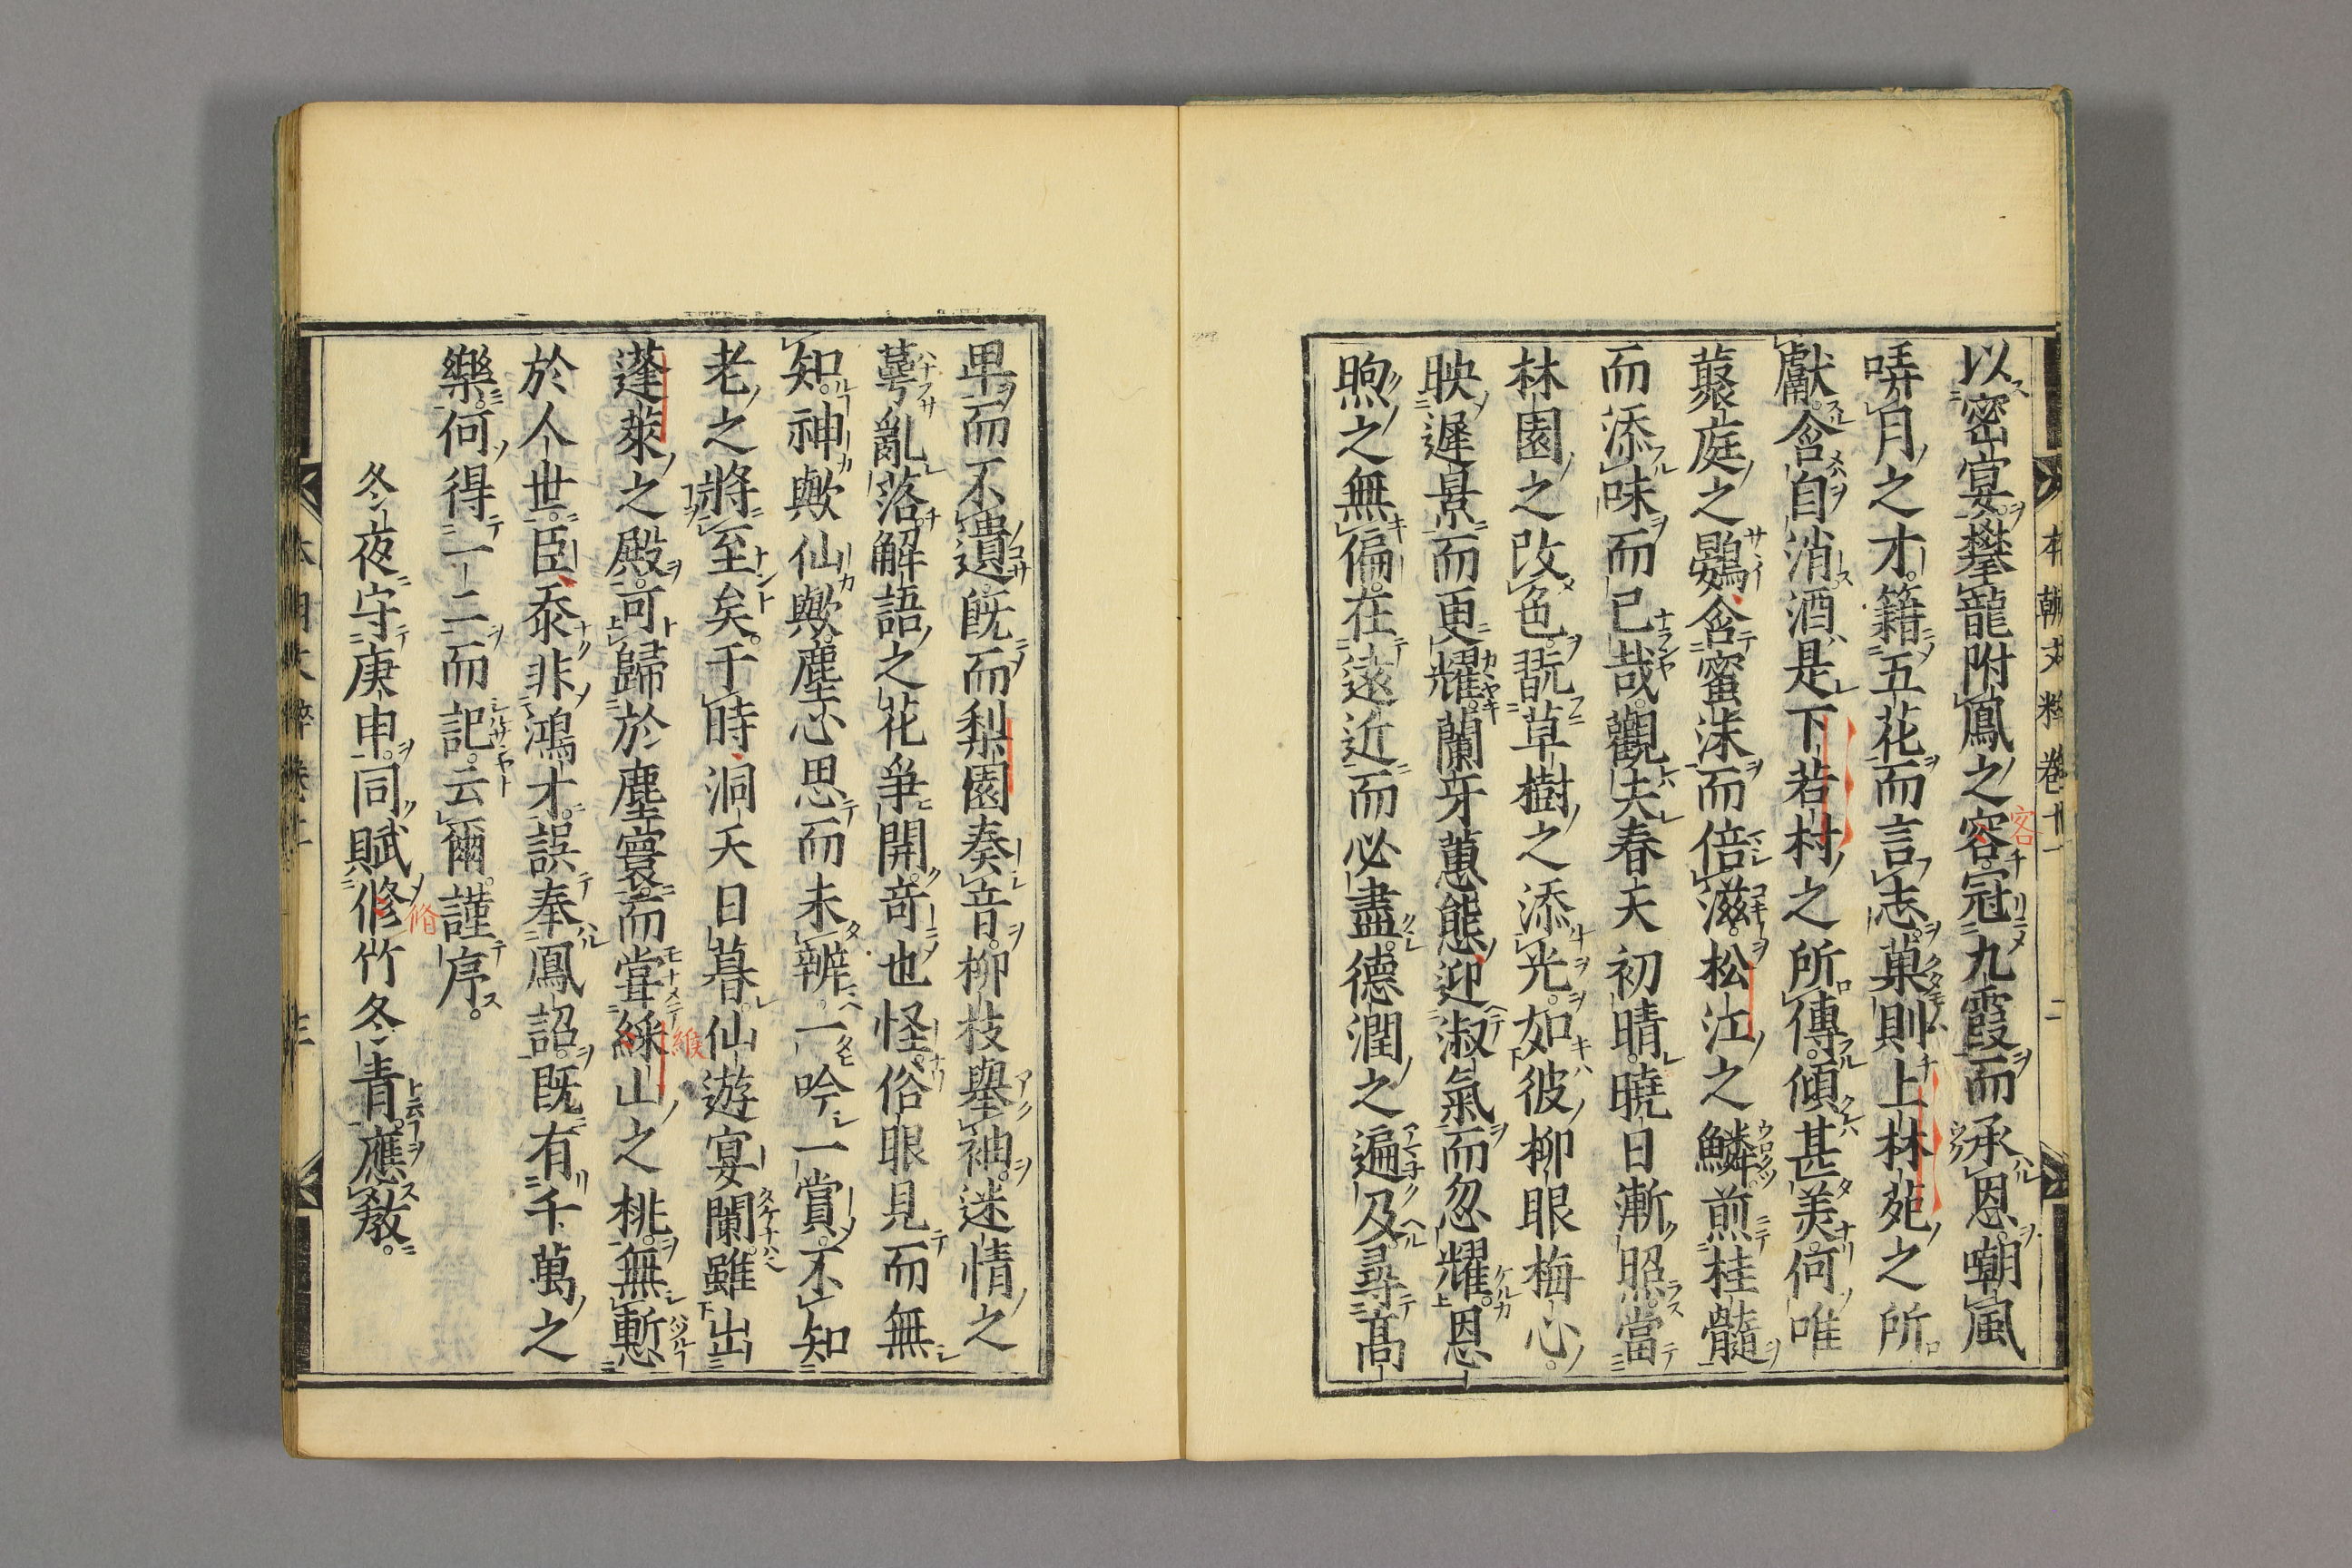 本朝文粹卷十一 二
以密宴攀龍附鳳之容冠九霞而承恩嘲風
哢月之才籍五花而言志菓則上林苑之所
獻含自消酒是下若村之所傳傾甚美何唯
蘂庭之鷃含蜜沫而倍滋松江之鱗煎桂髓
而添味而已哉觀夫春天初晴曉日漸照當
林園之改色翫草樹之添光如彼柳眼梅心
映遲景而更耀蘭牙蕙態迎淑氣而忽耀恩
煦之無偏在遠近而必盡德潤之遍及尋高
卑而不遺既而梨園奏音柳枝舉袖迷情之
蕚亂落解語之花爭開奇也怪俗眼見而無
知神歟仙歟塵心思而未辨一吟一賞不知
老之將至矣于時洞天日暮仙遊宴闌雖出
蓬萊之殿可歸於塵寰而甞綵山之桃無慙
於人世臣忝非鴻才誤奉鳳詔既有千萬之
樂何得一二而記云爾謹序
冬夜守庚申同賦修竹冬青應教
三
容
緱
脩